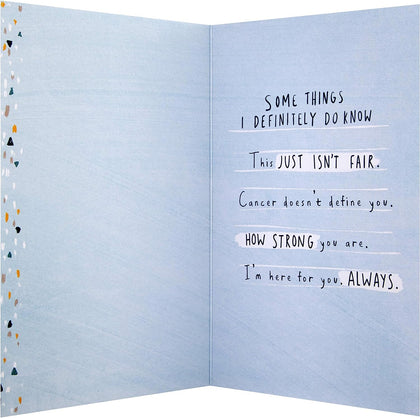 SOME THINGS
I DEFINITELY DO KNOW
This JUST ISN'T FAIR.
Cancer doesn't define you.
HOW STRONG you are.
I'm here for you. ALWAYS.